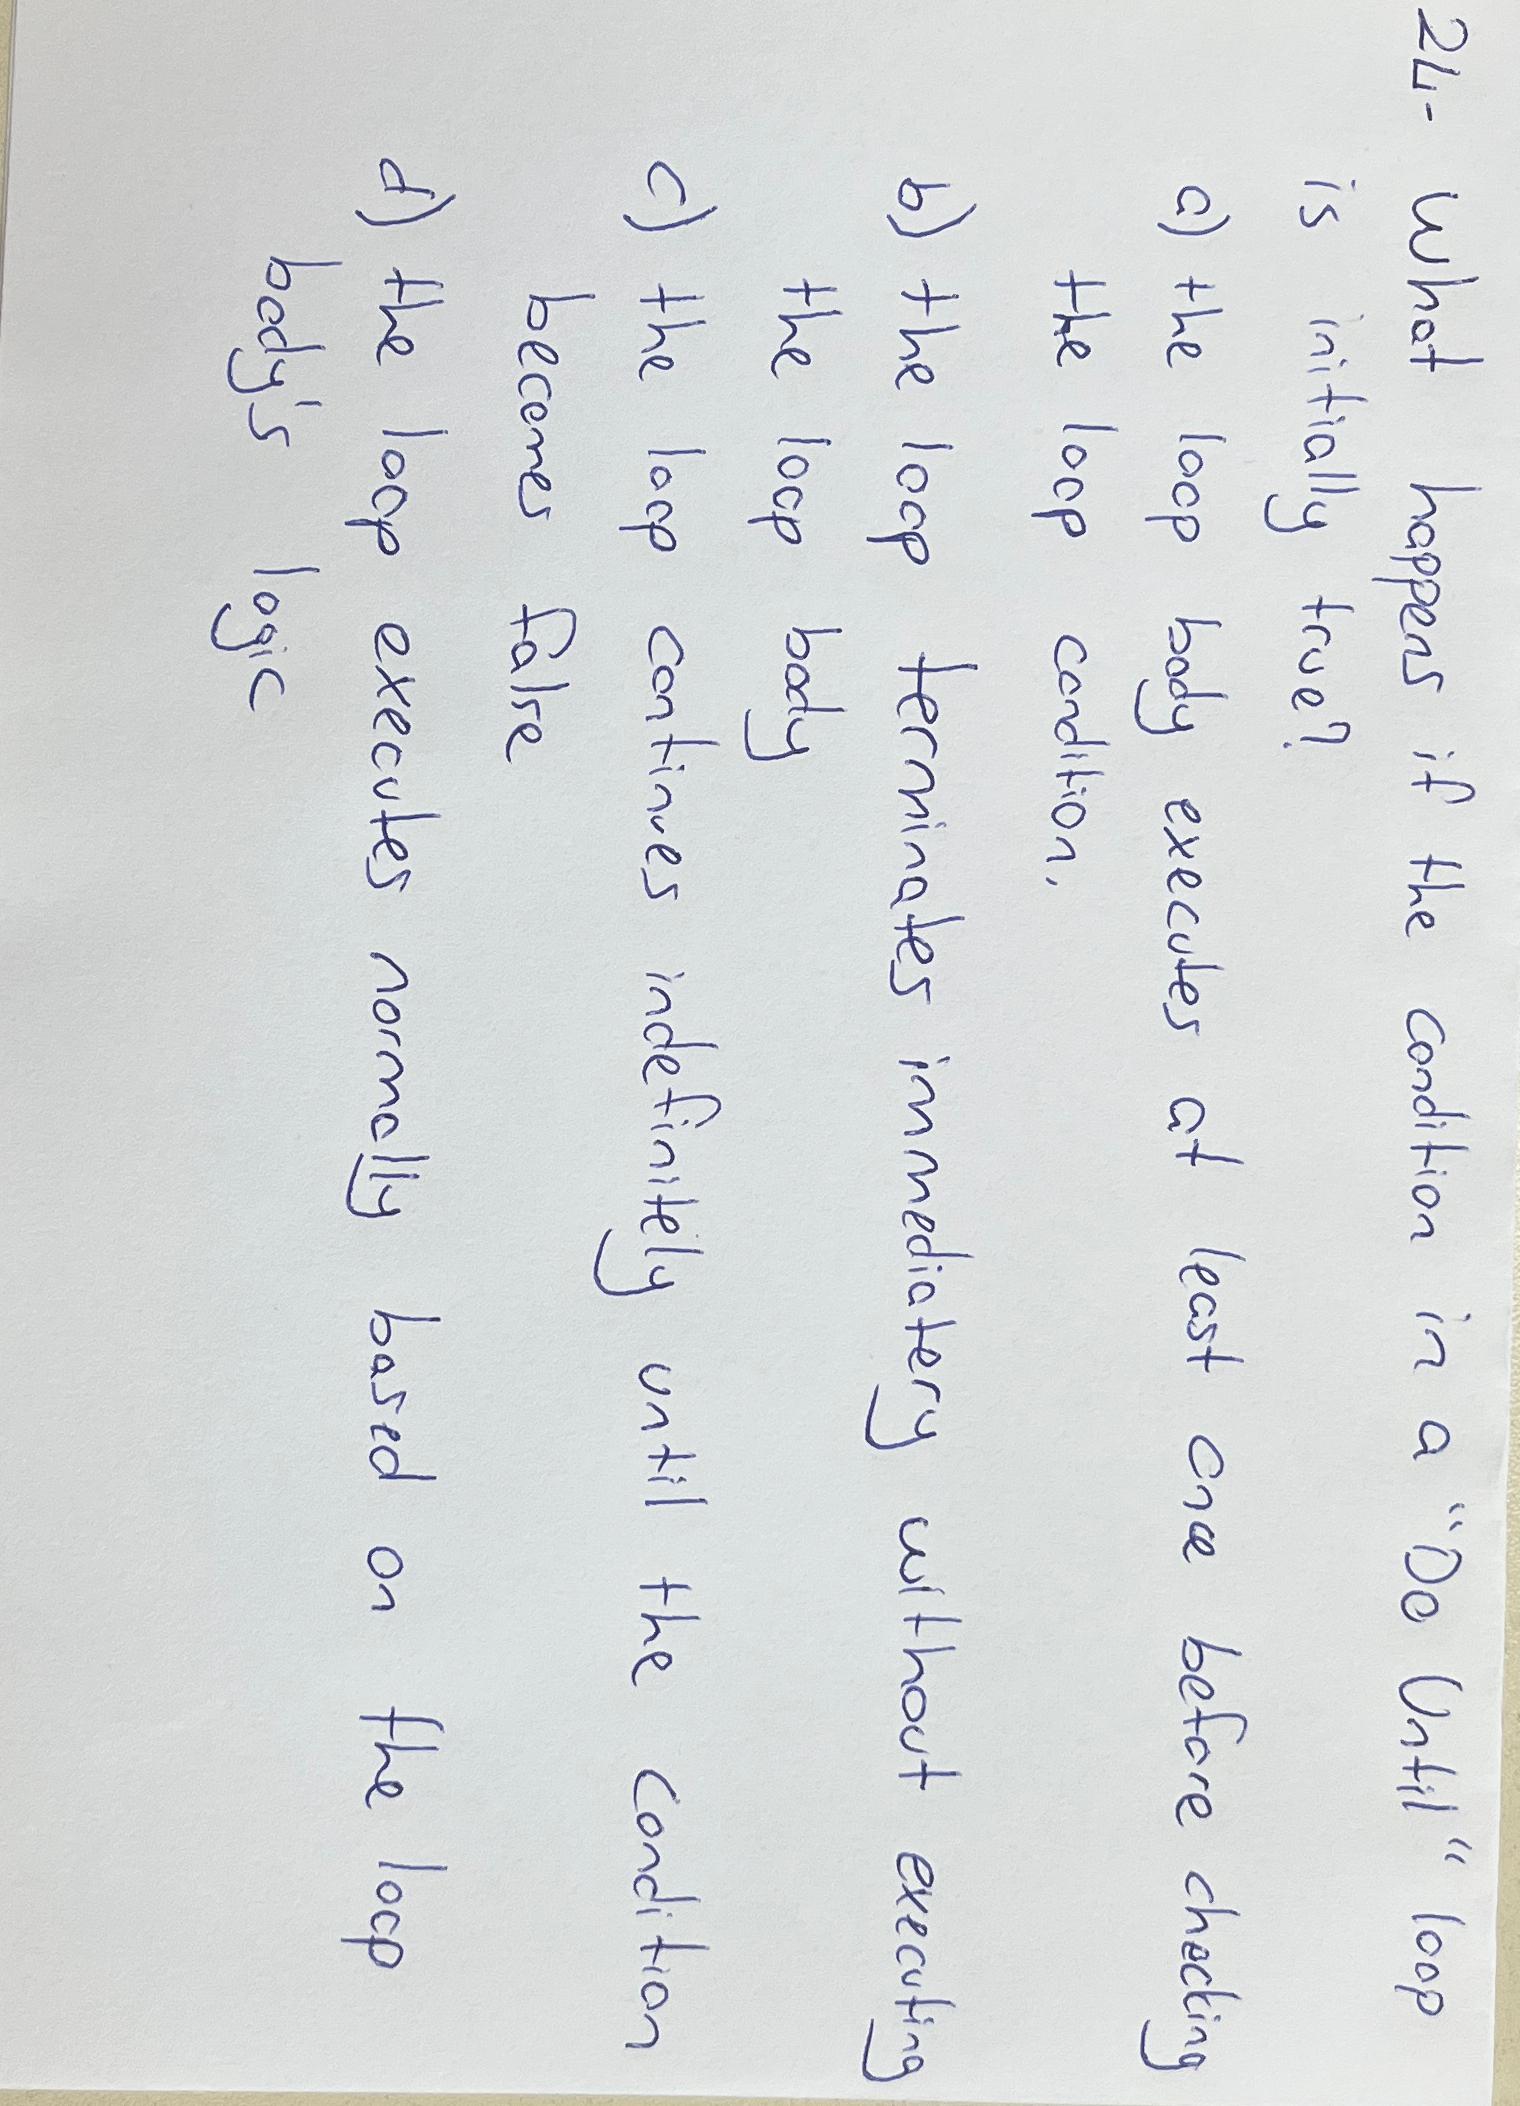 24- What happens if the condition in a "Do Until" loop
is initially true?
a) the loop body executes at least once before checking
the loop condition.
b) the loop terminates immediatery without executing
the loop body
c) the loop continues indefinitely until the condition
becomes false
d) the loop executes normally based on the loop
body's logic